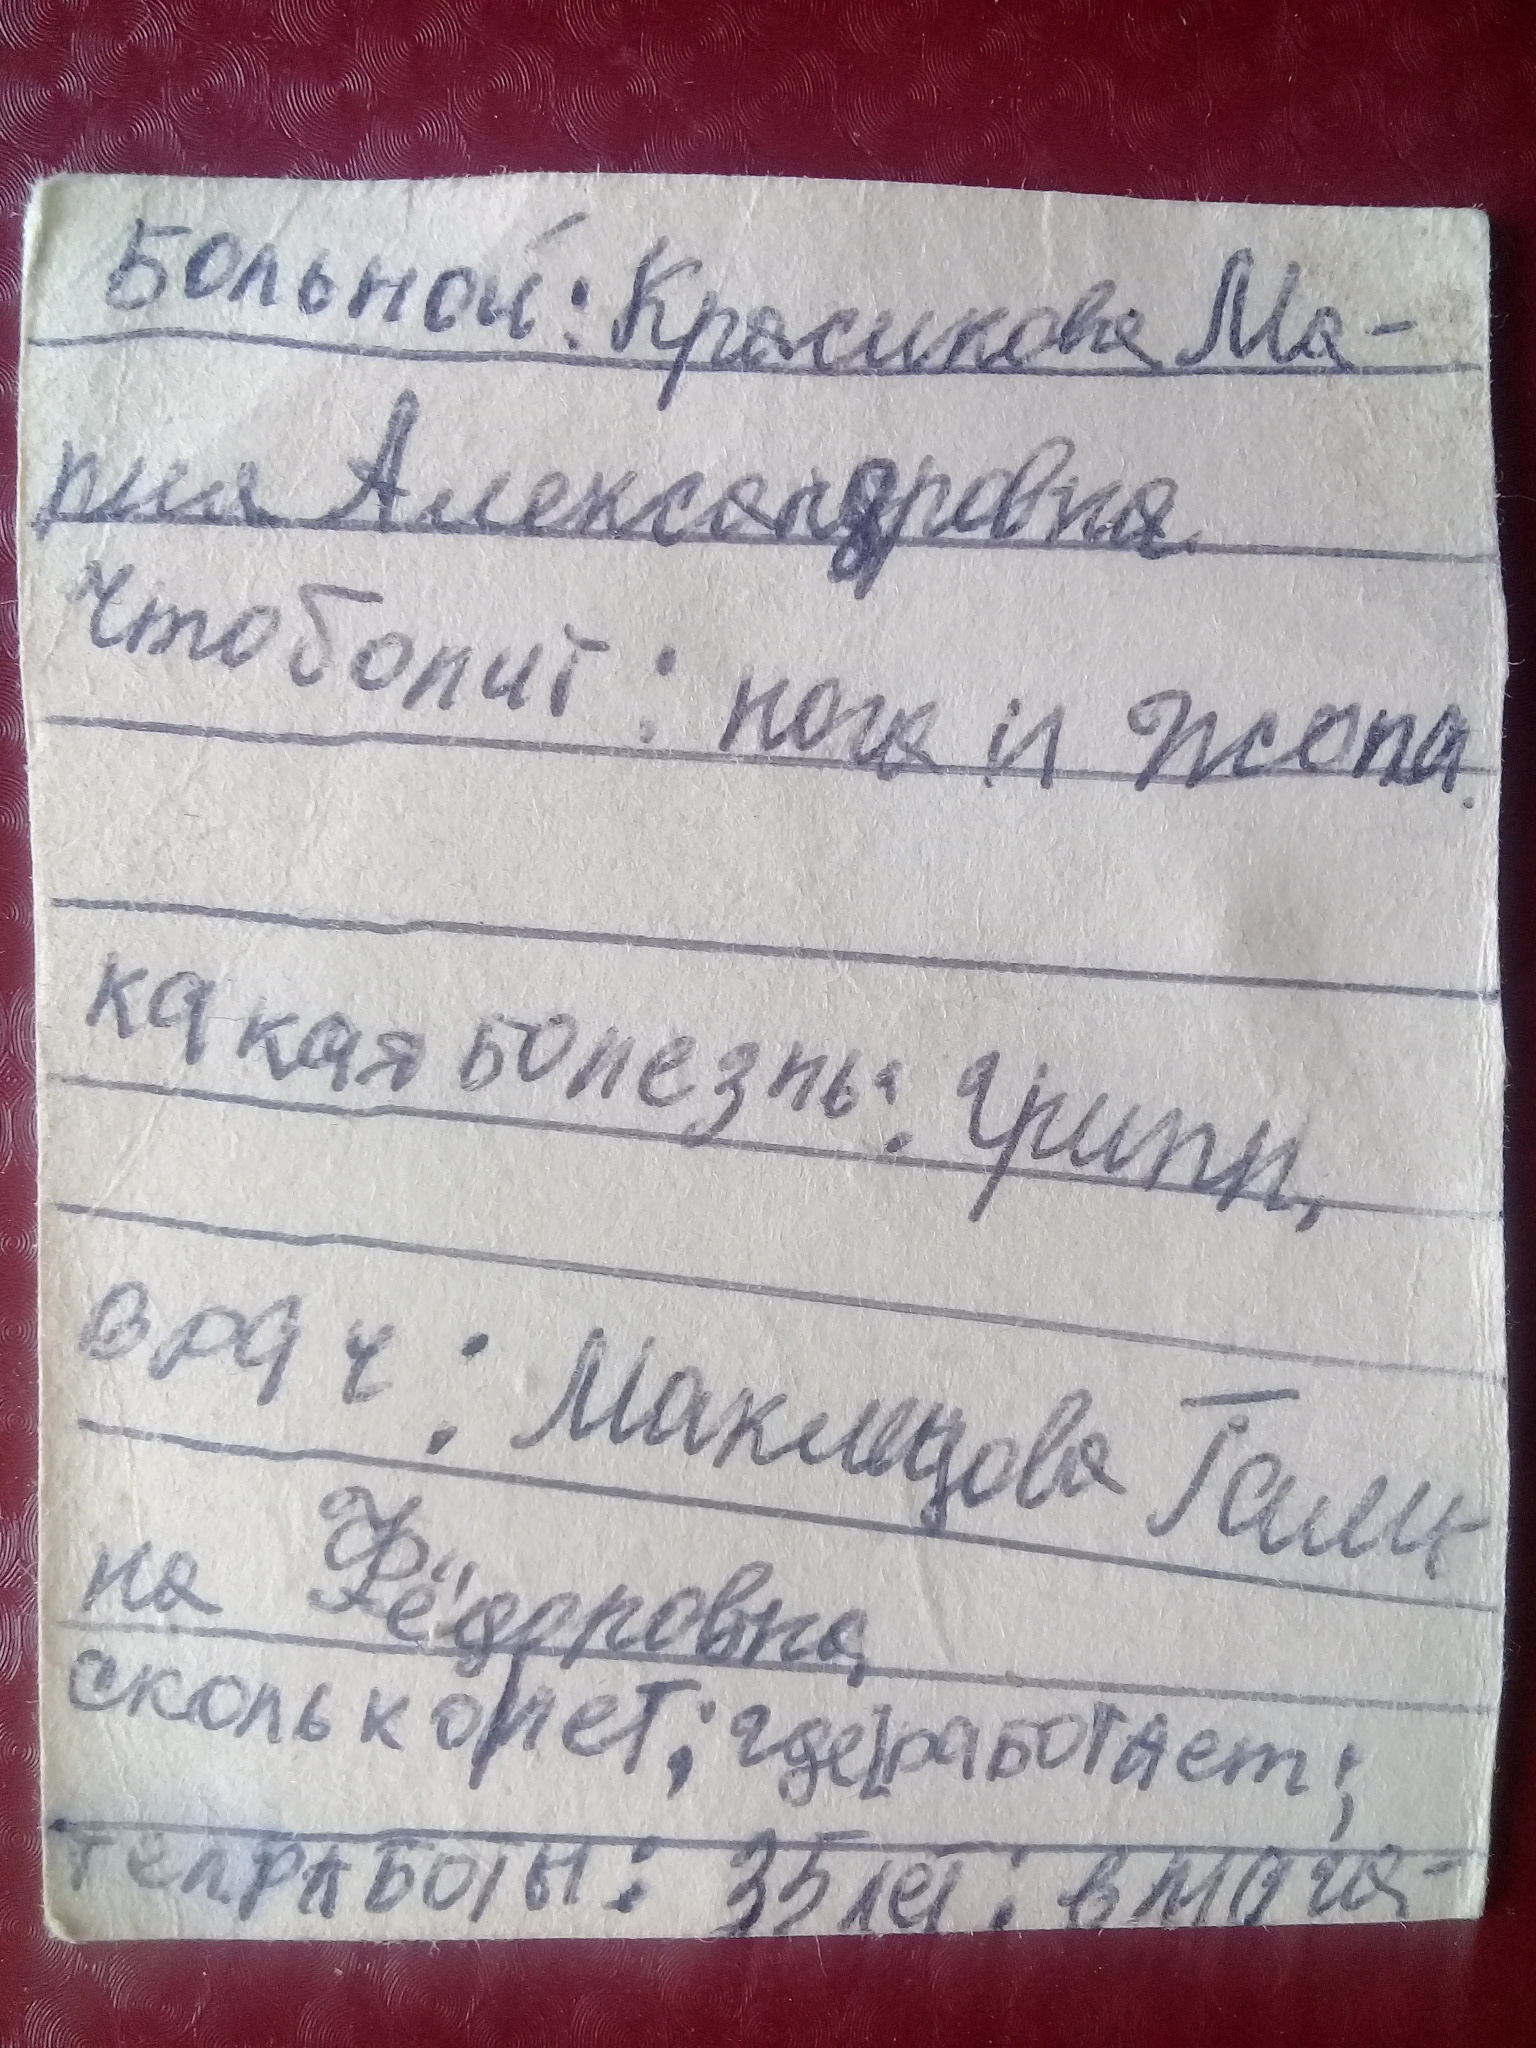 Больной: Красикова Ма-
рия Александровна.
Что болит: нога и жопа.
какая болезнь: грипп.
врач: Маклецова Гали-
на Фёдоровна
сколько лет; где работает;
тел работы: 35 лет; в мага-